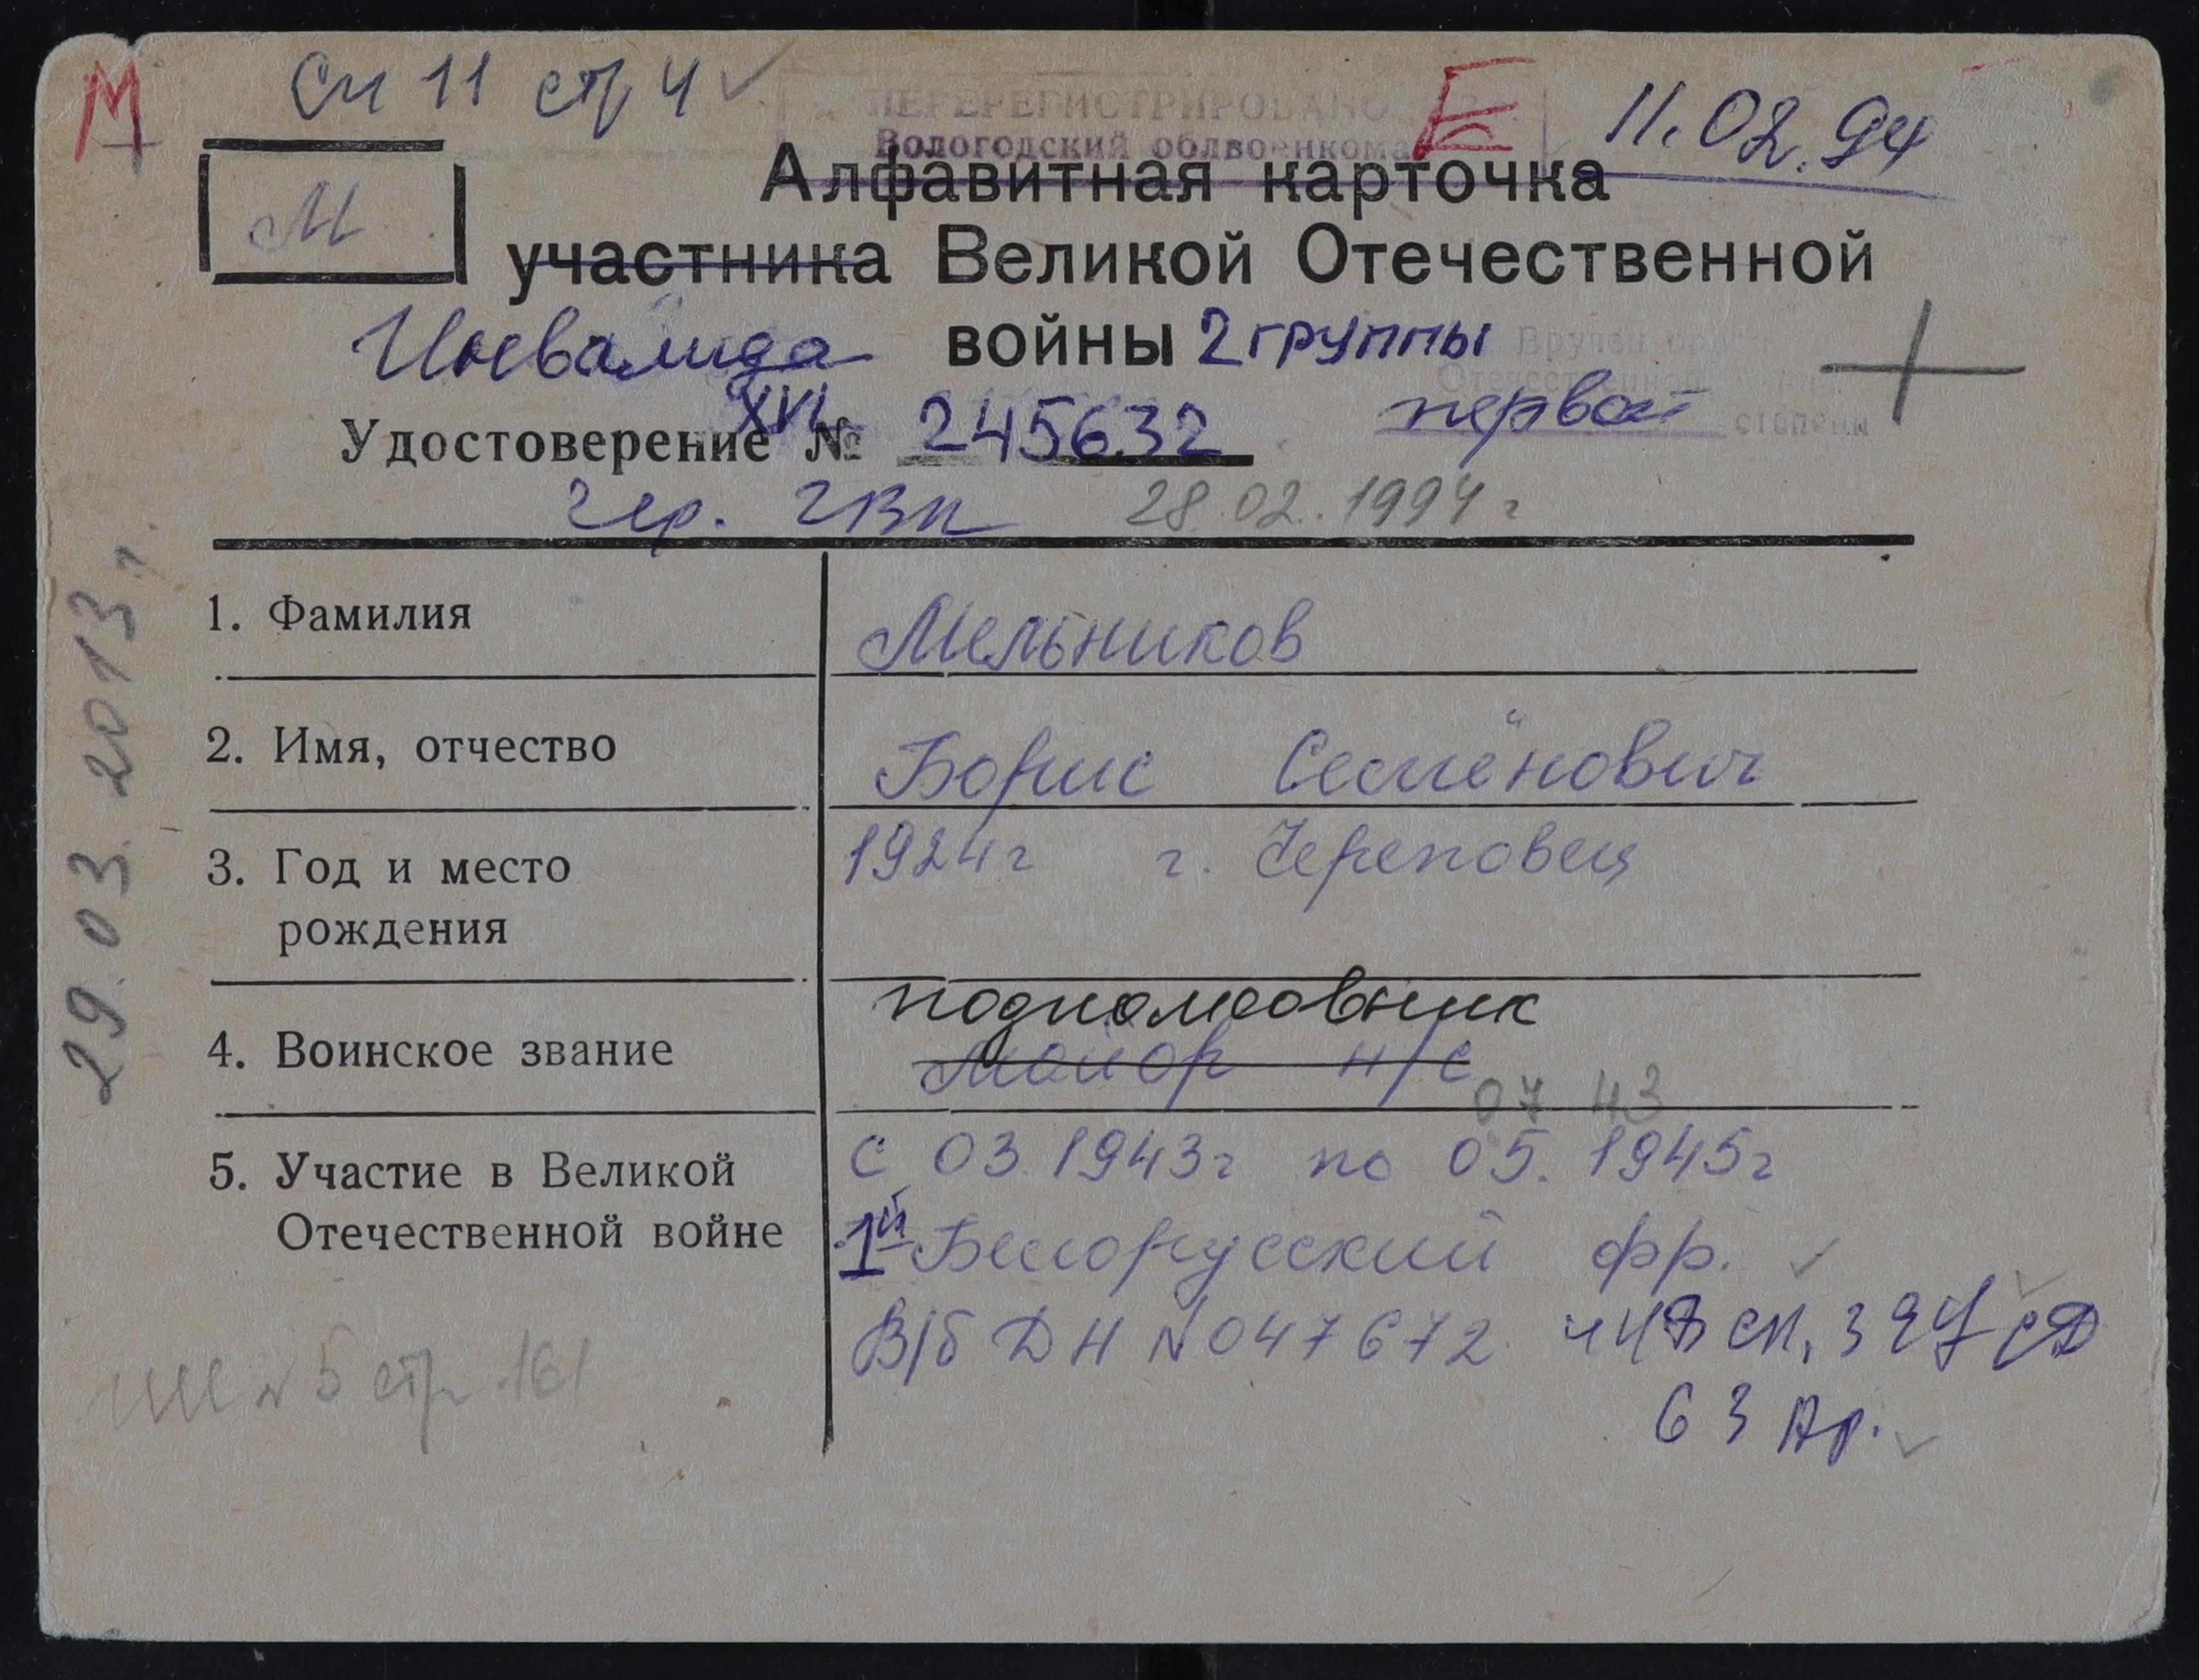 М
Сп 11 стр 4
ПЕРЕРЕГИСТРИРОВАНО
Вологодский облвоенкома
Е
11.02.94
М
Алфавитная карточка
участника Великой Отечественной
Инвалида войны 2 группы
Вручен
Отечественной
первой степени
XVI
Удостоверение № 245632
Чер. ГВК 28.02.1994 г
29.03.2013 г.
1. Фамилия Мельников
2. Имя, отчество Борис Семёнович
3. Год и место 1924 г г. Череповец
рождения
подполковник
4. Воинское звание майор н/с
07 43
5. Участие в Великой с 03.1943 г по 05.1945 г
Отечественной войне 1й Белорусский фр.
В/б ДН №047672 сп, СД
№ 5 стр 161
63